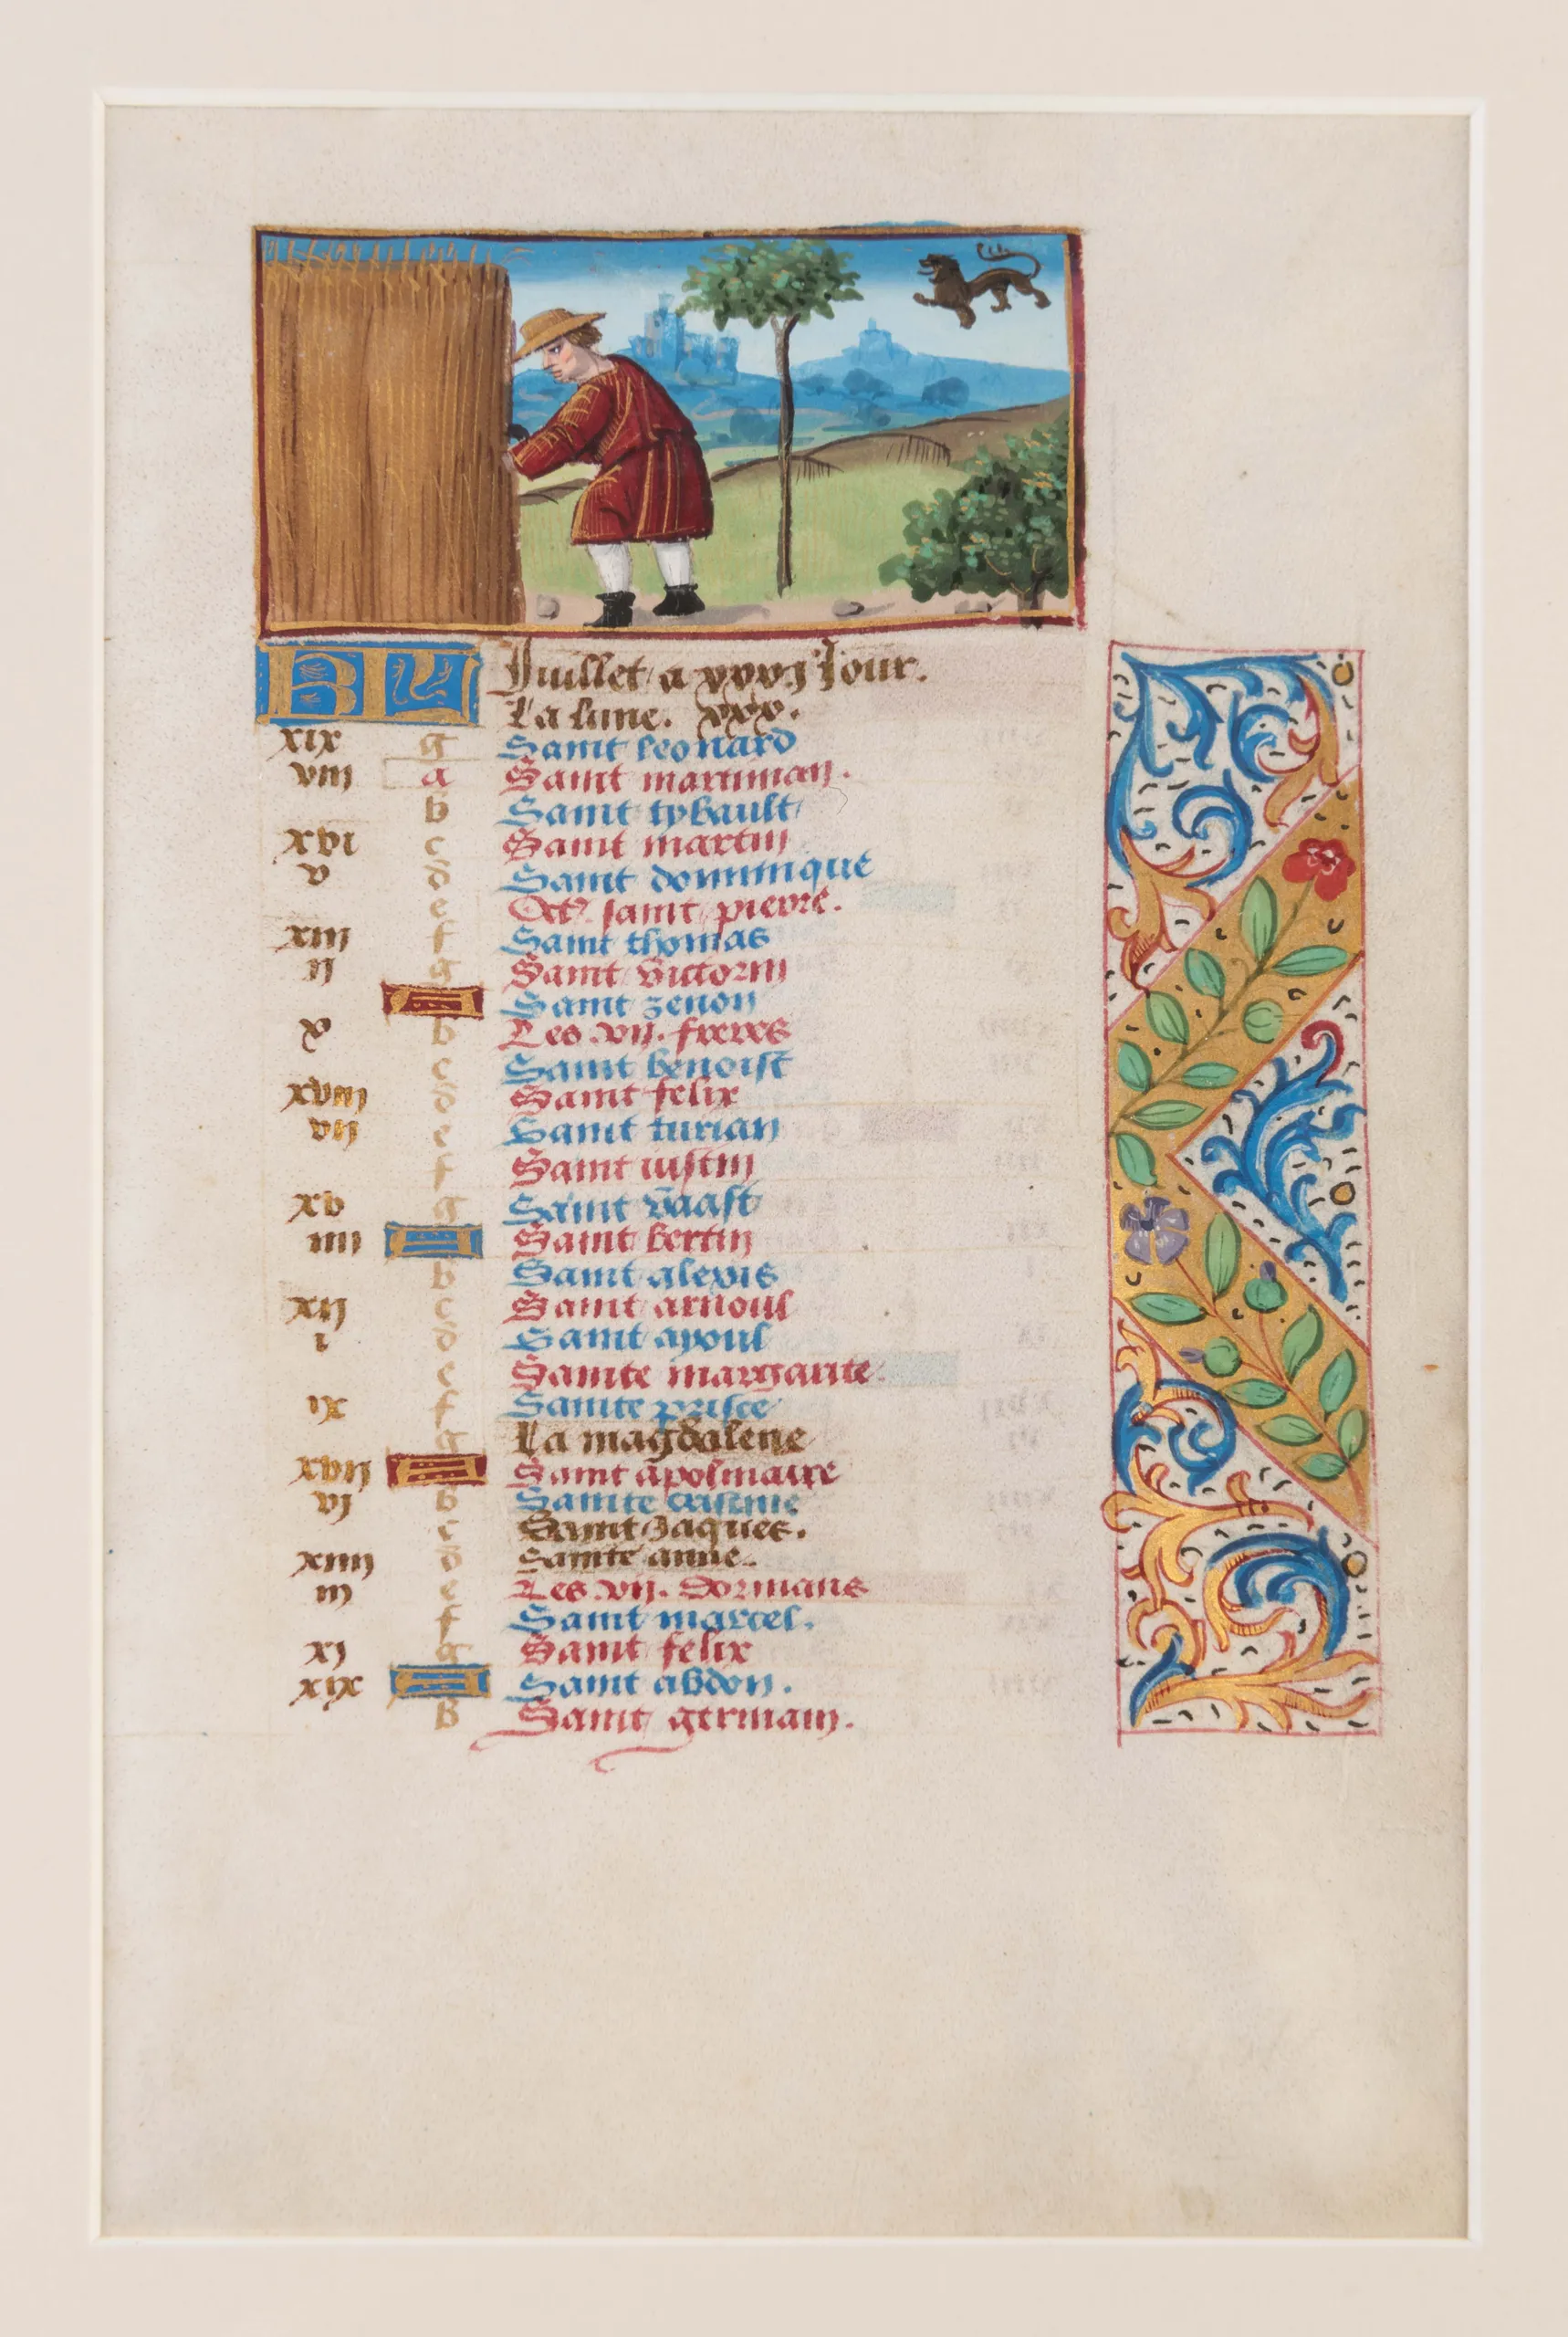 KL Juillet a xxxj Jour.
La lune. xxx.
xix g Saint leonard
viii a Saint martinian.
b Saint tybault
xvi c Saint martin
v d Saint dominique
e Oct. saint pierre.
xiii f Saint thomas
ii g Saint victorin
A Saint zenon
x b Les .vij. freres
c Saint benoist
xviii d Saint felix
vii e Saint turian
f Saint iustin
xv g Saint vaast
iiii A Saint bertin
b Saint alexis
xii c Saint arnoul
i d Saint ayoul
e Sainte margarite.
ix f Sainte prisce
g La magdalene
xvii A Saint apolinaire
vj b Sainte cristine
c Saint Jaques.
xiiii d Sainte anne.
iii e Les .vij. dormans
f Saint marcel.
xj g Saint felix
xix A Saint abdon.
b Saint germain.